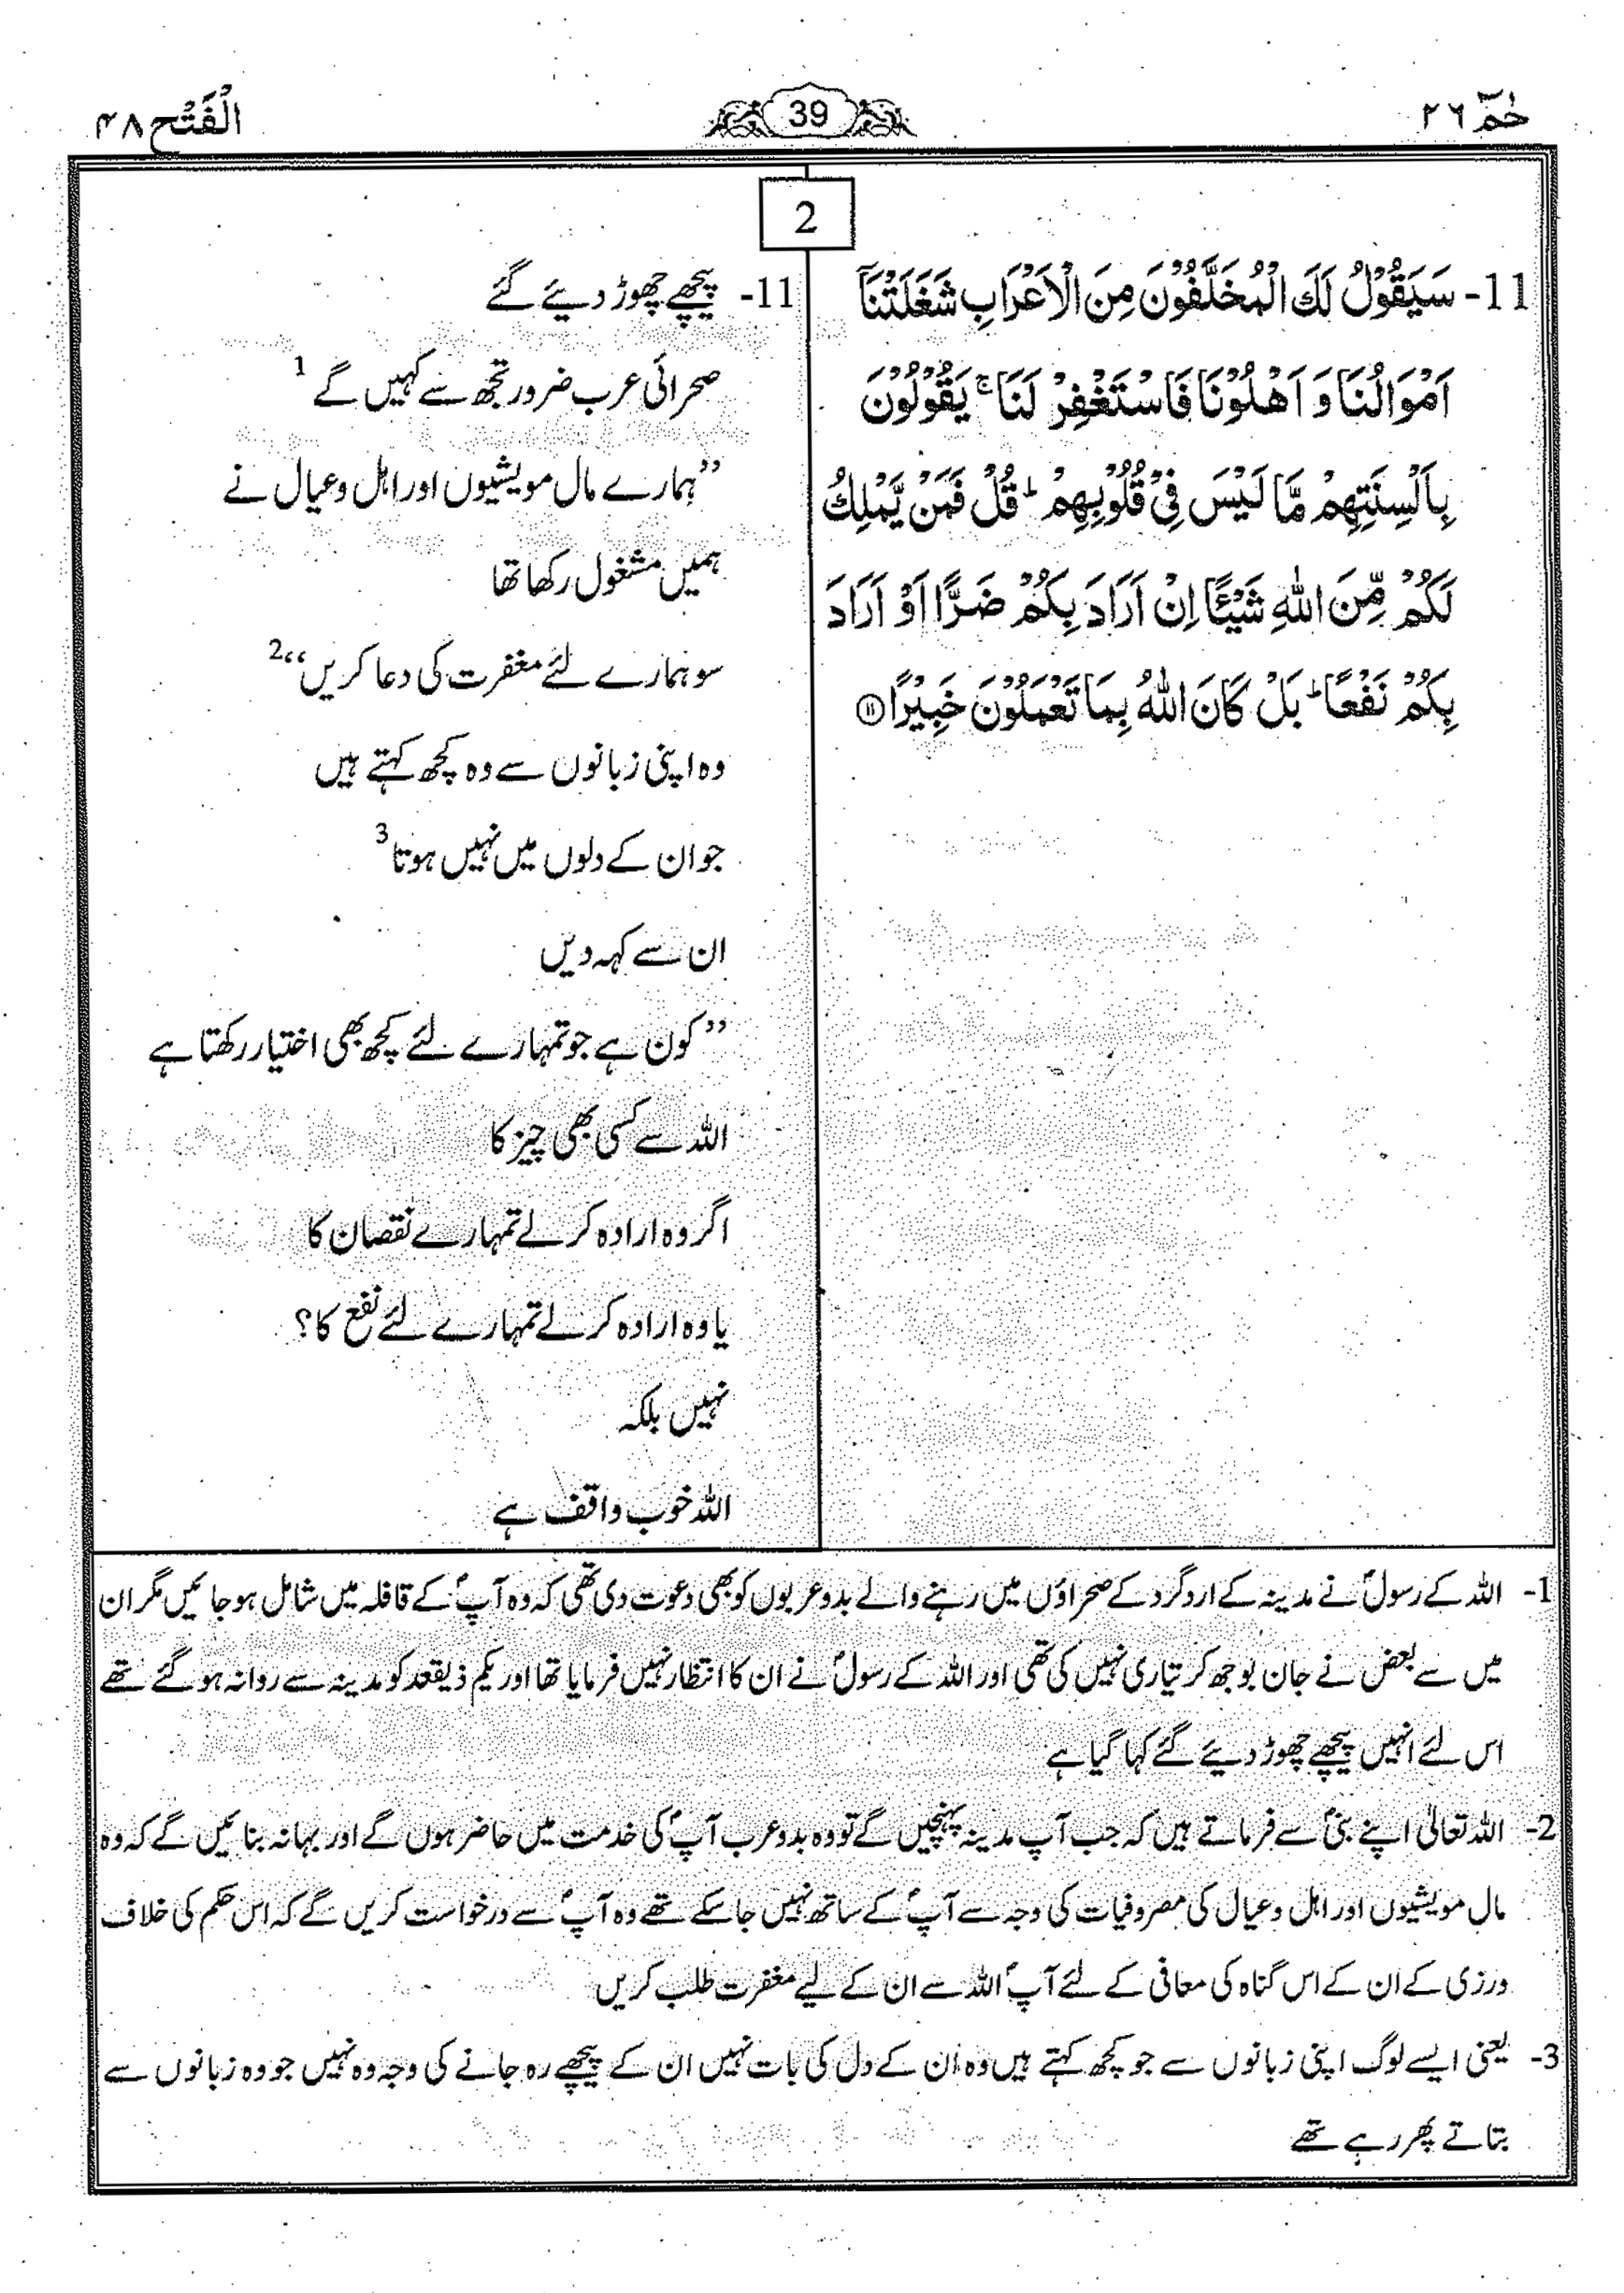 حٰمٓ ٢٦
39
الْفَتْح ٤٨
2
11- سَيَقُوْلُ لَكَ الْمُخَلَّفُوْنَ مِنَ الْاَعْرَابِ شَغَلَتْنَاۤ
اَمْوَالُنَا وَ اَهْلُوْنَا فَاسْتَغْفِرْ لَنَا ۚ يَقُوْلُوْنَ
بِاَلْسِنَتِهِمْ مَّا لَيْسَ فِيْ قُلُوْبِهِمْ ؕ قُلْ فَمَنْ يَّمْلِكُ
لَكُمْ مِّنَ اللّٰهِ شَيْـًٔا اِنْ اَرَادَ بِكُمْ ضَرًّا اَوْ اَرَادَ
بِكُمْ نَفْعًا ؕ بَلْ كَانَ اللّٰهُ بِمَا تَعْمَلُوْنَ خَبِيْرًا ⑪
11- پیچھے چھوڑ دیئے گئے
صحرائی عرب ضرور تجھ سے کہیں گے 1
’’ہمارے مال مویشیوں اور اہل و عیال نے
ہمیں مشغول رکھا تھا
سو ہمارے لئے مغفرت کی دعا کریں‘‘ 2
وہ اپنی زبانوں سے وہ کچھ کہتے ہیں
جو ان کے دلوں میں نہیں ہوتا 3
ان سے کہہ دیں
’’کون ہے جو تمہارے لئے کچھ بھی اختیار رکھتا ہے
اللہ سے کسی بھی چیز کا
اگر وہ ارادہ کر لے تمہارے نقصان کا
یا وہ ارادہ کر لے تمہارے لئے نفع کا؟
نہیں بلکہ
اللہ خوب واقف ہے
1- اللہ کے رسولؐ نے مدینہ کے اردگرد کے صحراؤں میں رہنے والے بدو عربوں کو بھی دعوت دی تھی کہ وہ آپؐ کے قافلہ میں شامل ہو جائیں مگر ان
میں سے بعض نے جان بوجھ کر تیاری نہیں کی تھی اور اللہ کے رسولؐ نے ان کا انتظار نہیں فرمایا تھا اور یکم ذیقعد کو مدینہ سے روانہ ہو گئے تھے
اس لئے انہیں پیچھے چھوڑ دیئے گئے کہا گیا ہے
2- اللہ تعالیٰ اپنے نبیؐ سے فرماتے ہیں کہ جب آپ مدینہ پہنچیں گے تو وہ بدو عرب آپؐ کی خدمت میں حاضر ہوں گے اور بہانہ بنائیں گے کہ وہ
مال مویشیوں اور اہل و عیال کی مصروفیات کی وجہ سے آپؐ کے ساتھ نہیں جا سکے تھے وہ آپؐ سے درخواست کریں گے کہ اس حکم کی خلاف
ورزی کے ان کے اس گناہ کی معافی کے لئے آپؐ اللہ سے ان کے لیے مغفرت طلب کریں
3- یعنی ایسے لوگ اپنی زبانوں سے جو کچھ کہتے ہیں وہ ان کے دل کی بات نہیں ان کے پیچھے رہ جانے کی وجہ وہ نہیں جو وہ زبانوں سے
بتاتے پھر رہے تھے